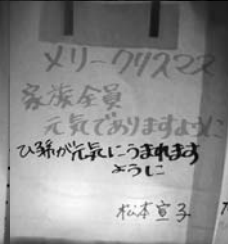 メリークリスマス
家族全員
元気でありますように
ひ孫が元気にうまれます
ように
松本宣子